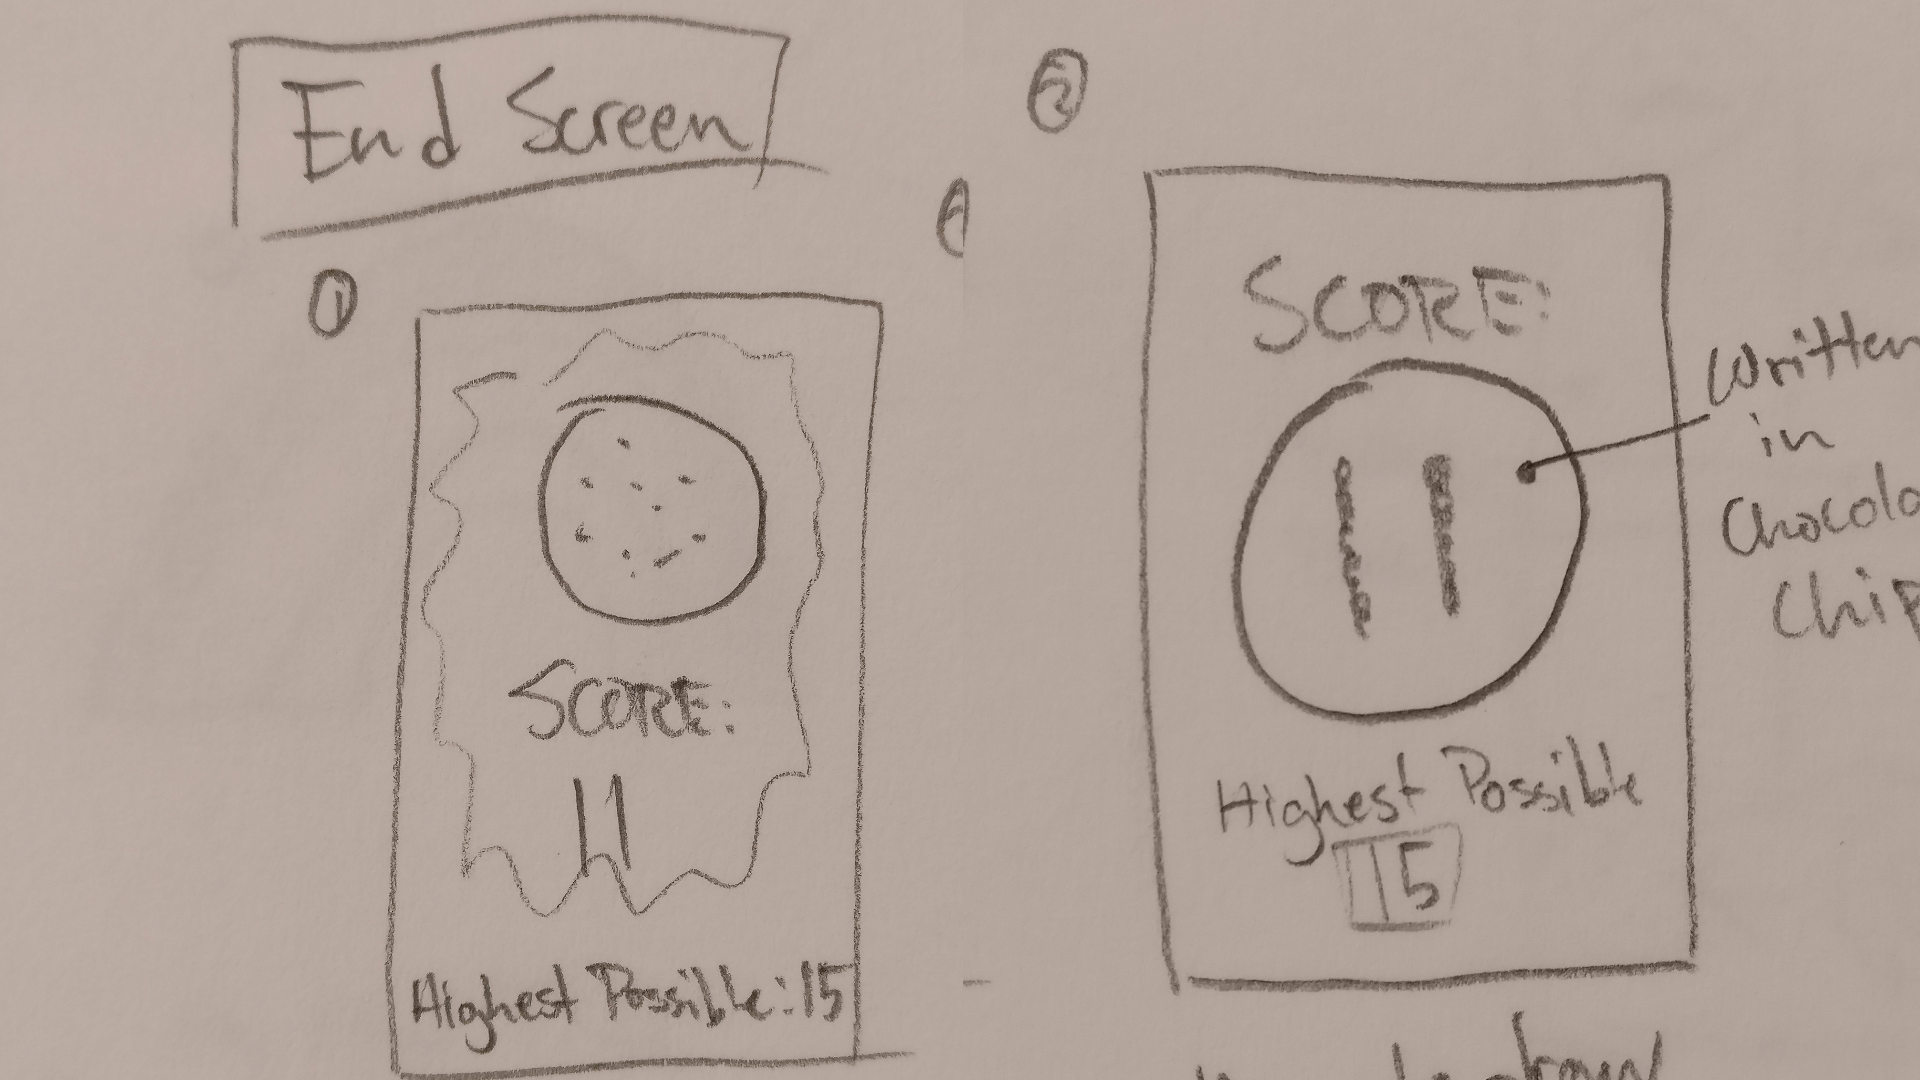 End Screen
1
SCORE:
11
Highest Possible:15
2
SCORE:
11
Written
in
Chocola
Chip
Highest Possible
15
draw